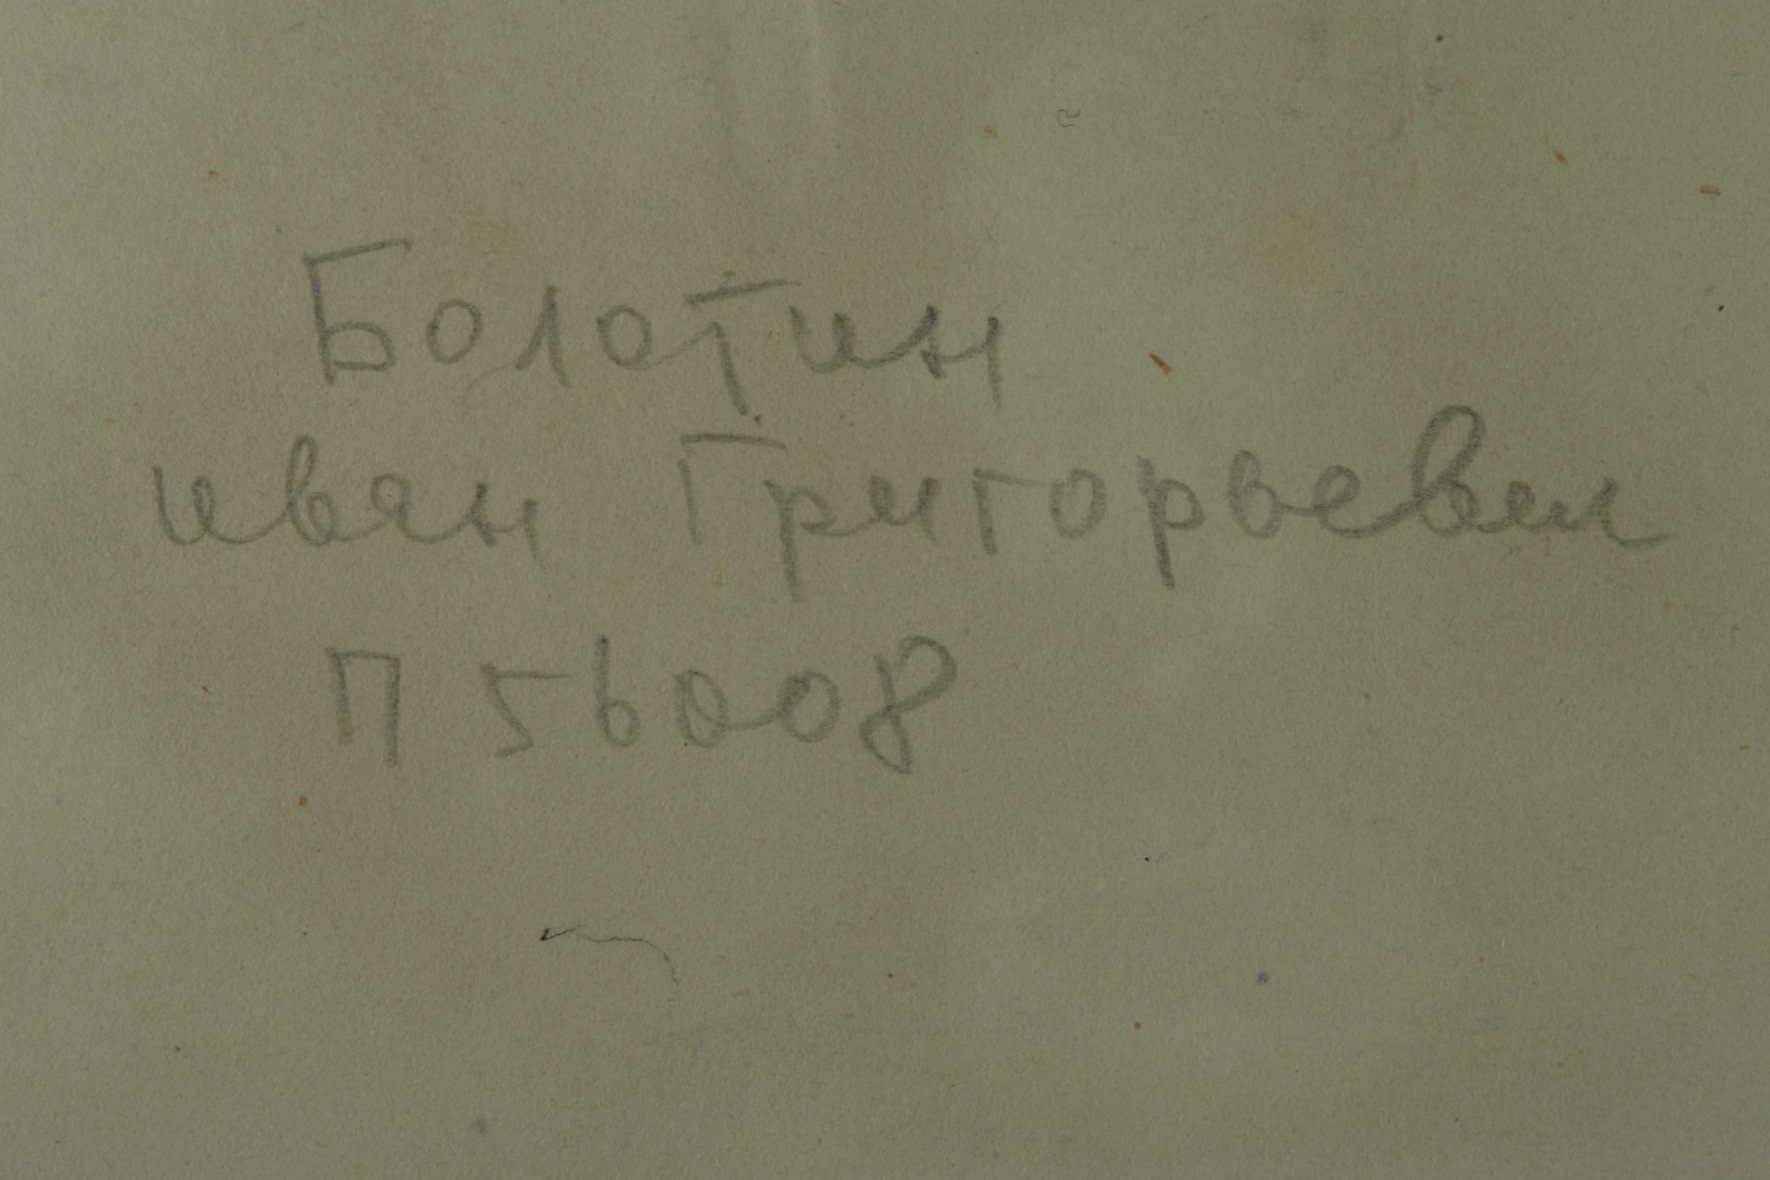 Болотин
иван Григорьевич
П 56008